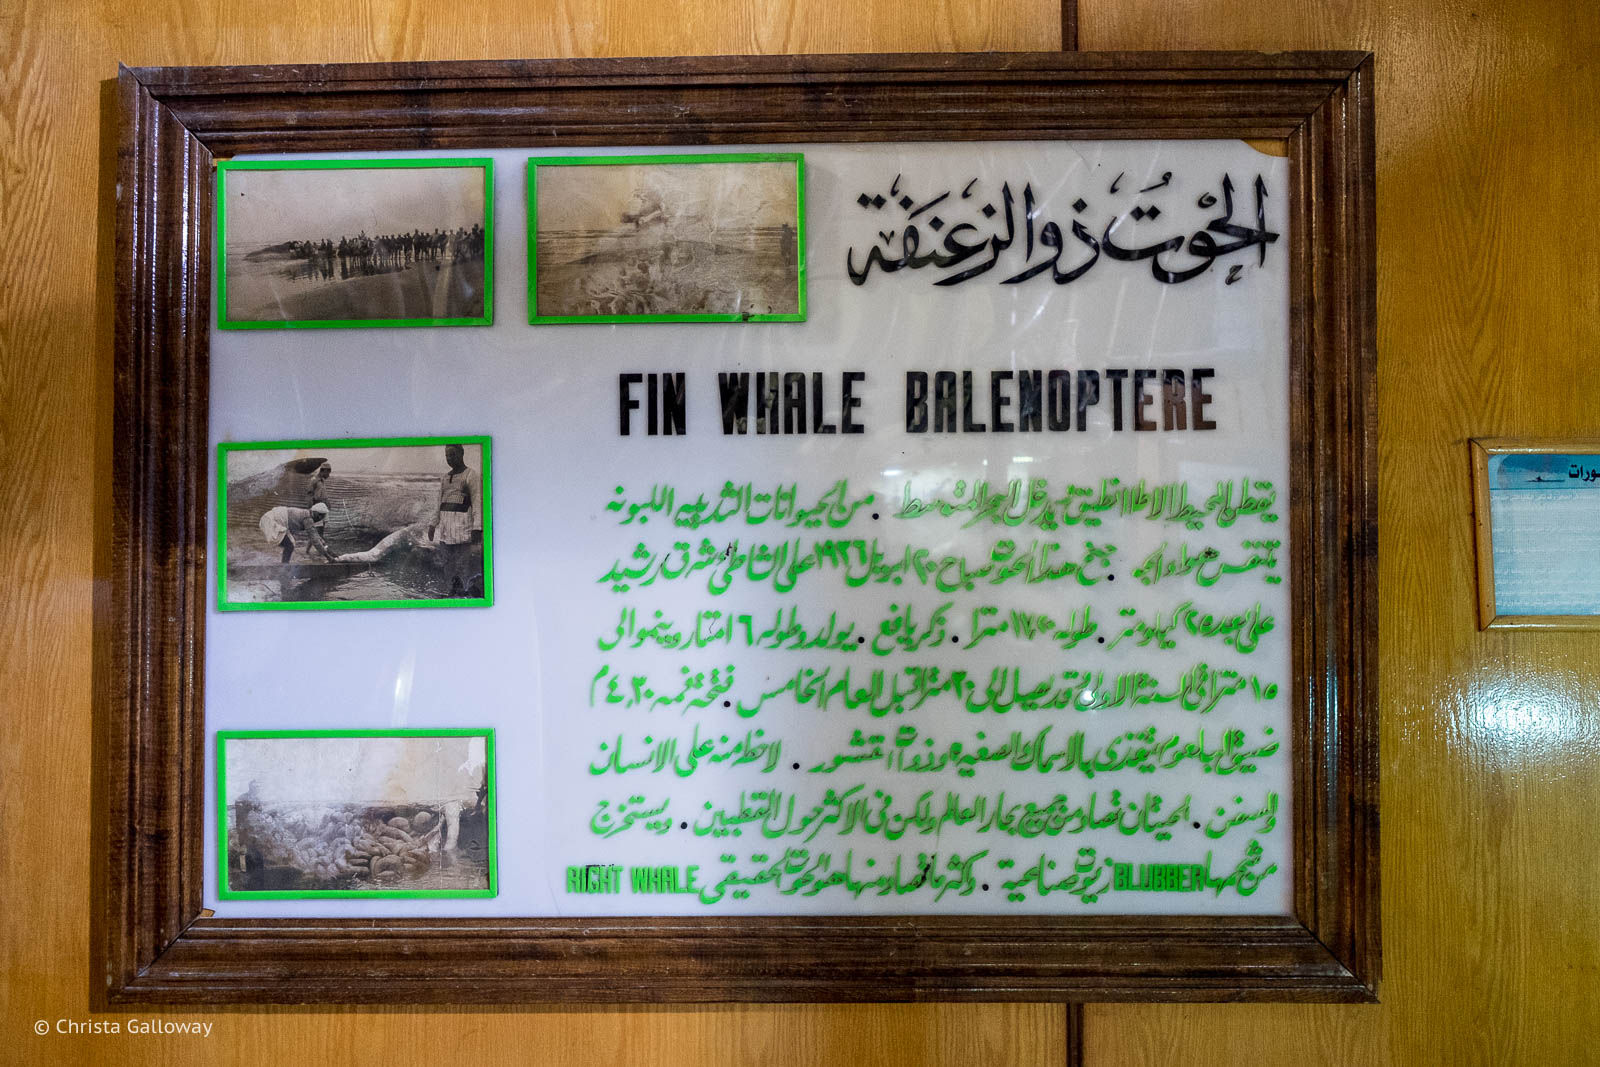 الحوت ذو الزعنفة
FIN WHALE BALENOPTERE
يقطن المحيط الاطلانطيق ويدخل البحر المتوسط . من الحيوانات الثدييه اللبونه
يتنفس هواء الجو . جنح هذا الحوت صباح ٢٠ ابريل ١٩٣٦ على الشاطئ شرق رشيد
على بعد ٢٥ كيلومتر . طوله مترا . ذكر يافع . يولد وطوله ٦ امتار وينمو الى
١٥ مترا في السنة الاولى وقد يصل الى ٢٠ مترا قبل العام الخامس . فتحة فمه ٤,٣٠ م
ضيق البلعوم يتغذى بالاسماك الصغيره وذوات القشور . لا خطر منه على الانسان
والسفن . الحيتان تصاد من جميع بحار العالم ولكن في الاكثر حول القطبين . ويستخرج
من شحمها BLUBBER زيوت صناعية . واكثر ما يصاد منها هو الحوت الحقيقي RIGHT WHALE
© Christa Galloway